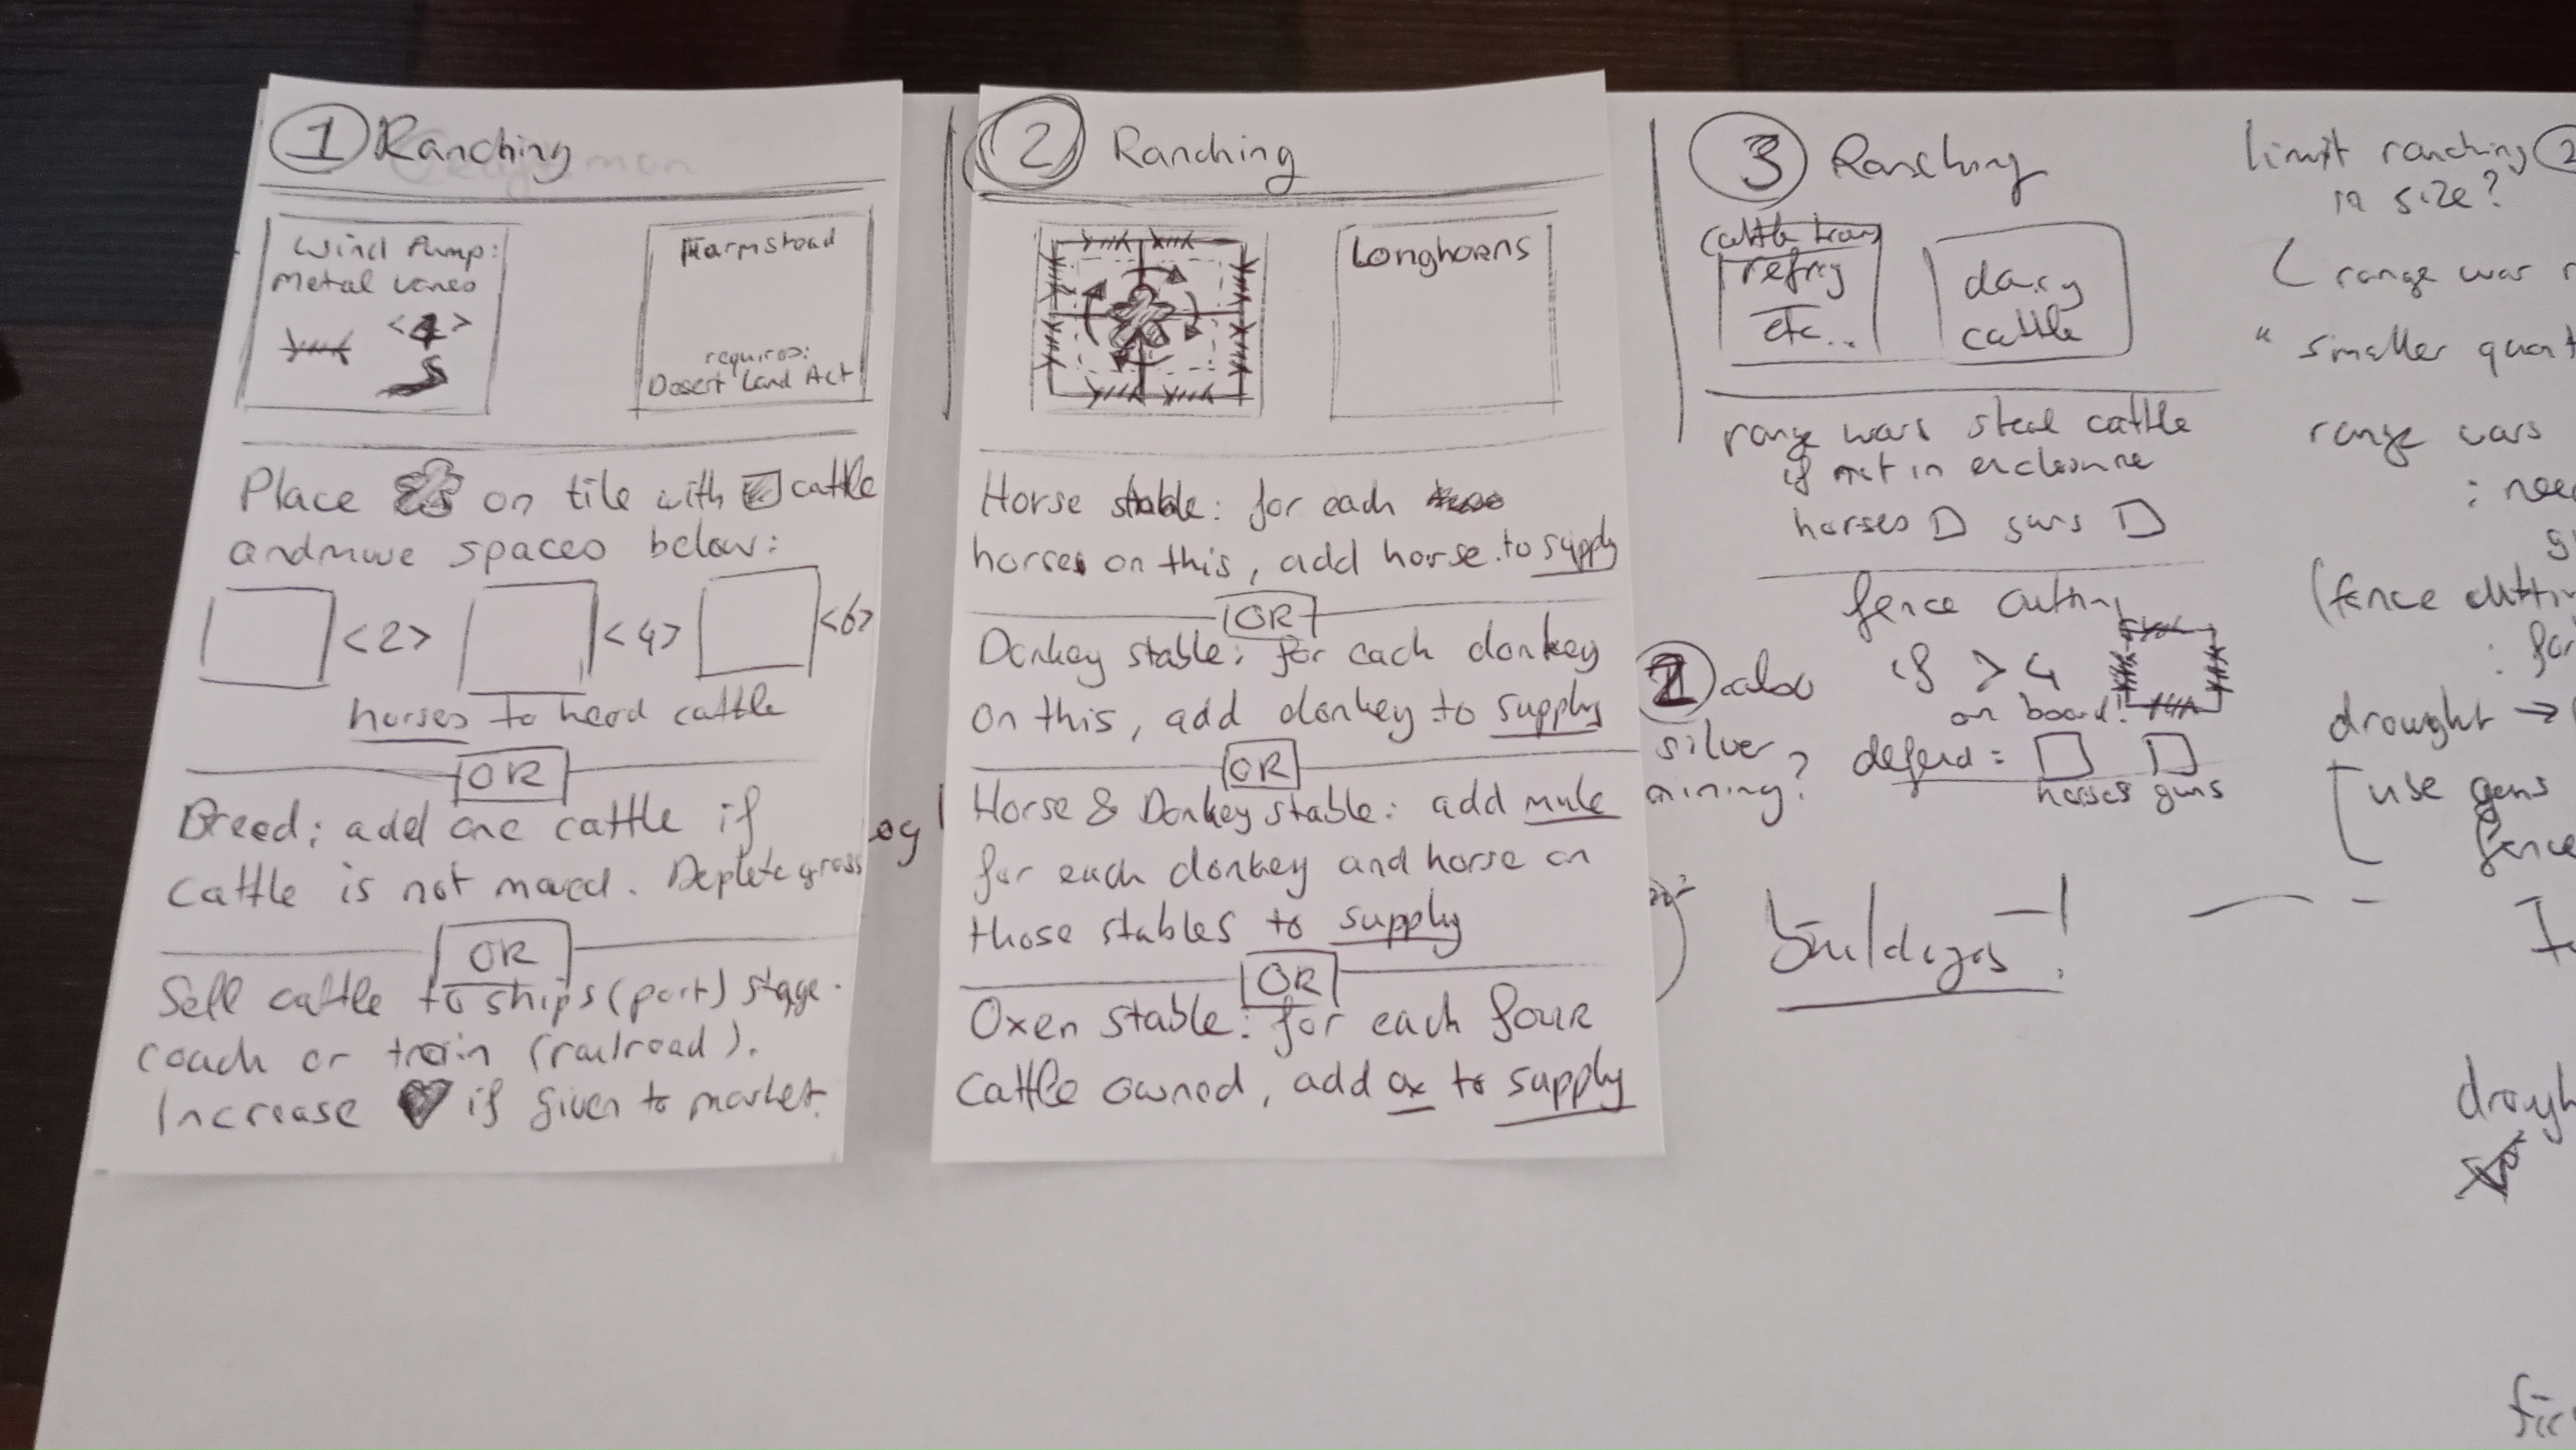 1 Ranching
Wind Pump:
Metal vanes
<4>
5
Farmstead
requires:
Desert Land Act
Place on tile with cattle
and move spaces below:
<2> <4> <6>
horses to herd cattle
OR
Breed: add one cattle if
cattle is not moved. Deplete grass
OR
Sell cattle to ships (port) stage-
coach or train (railroad).
Increase ♥ if given to market.
2 Ranching
Longhorns
Horse stable: for each
horses on this, add horse to supply
OR
Donkey stable: for each donkey
on this, add donkey to supply
OR
Horse & Donkey stable: add mule
for each donkey and horse on
those stables to supply
OR
Oxen stable: for each four
cattle owned, add ox to supply
og
3 Ranching
cattle
refrig
etc..
dairy
cattle
range wars steal cattle
if not in enclosure
horses guns
fence cutting
if > 4
on board!
defend =
horses guns
also
silver
mining?
buildings!
limit ranching 2
in size?
( range war
" smaller
range wars
: need
(fence
drought →
use guns
fence